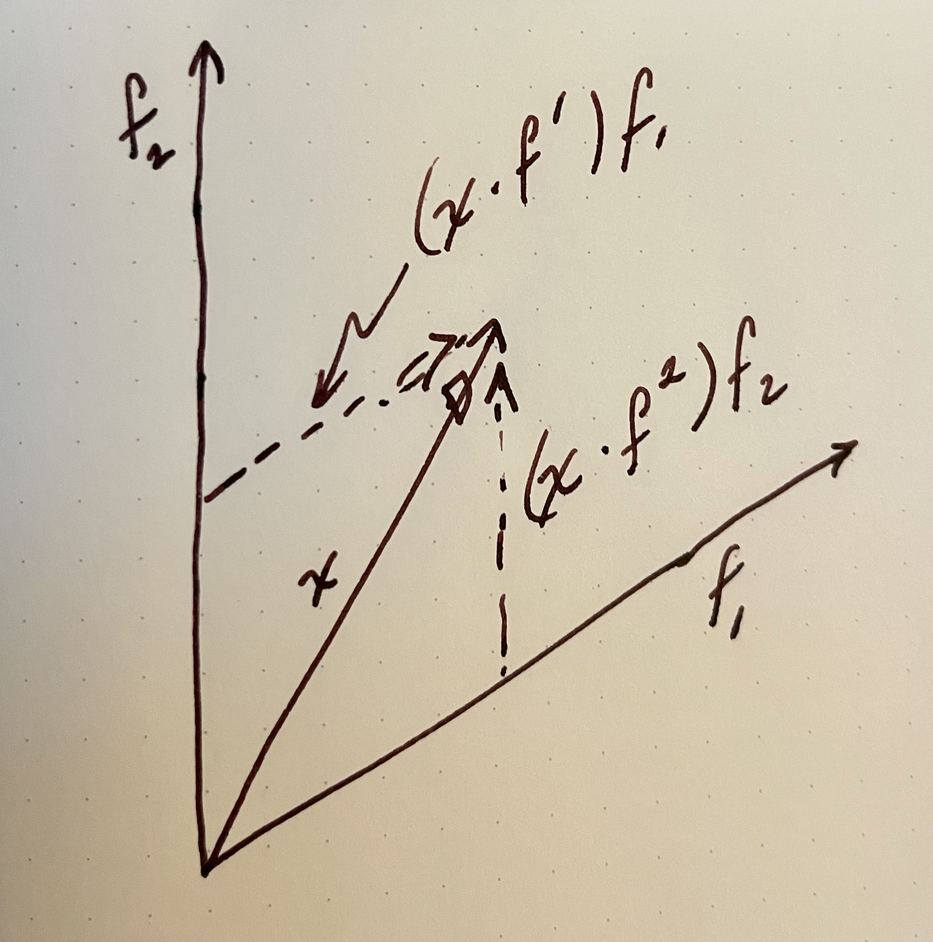 f₂
(x · f¹) f₁
(x · f²) f₂
x
f₁